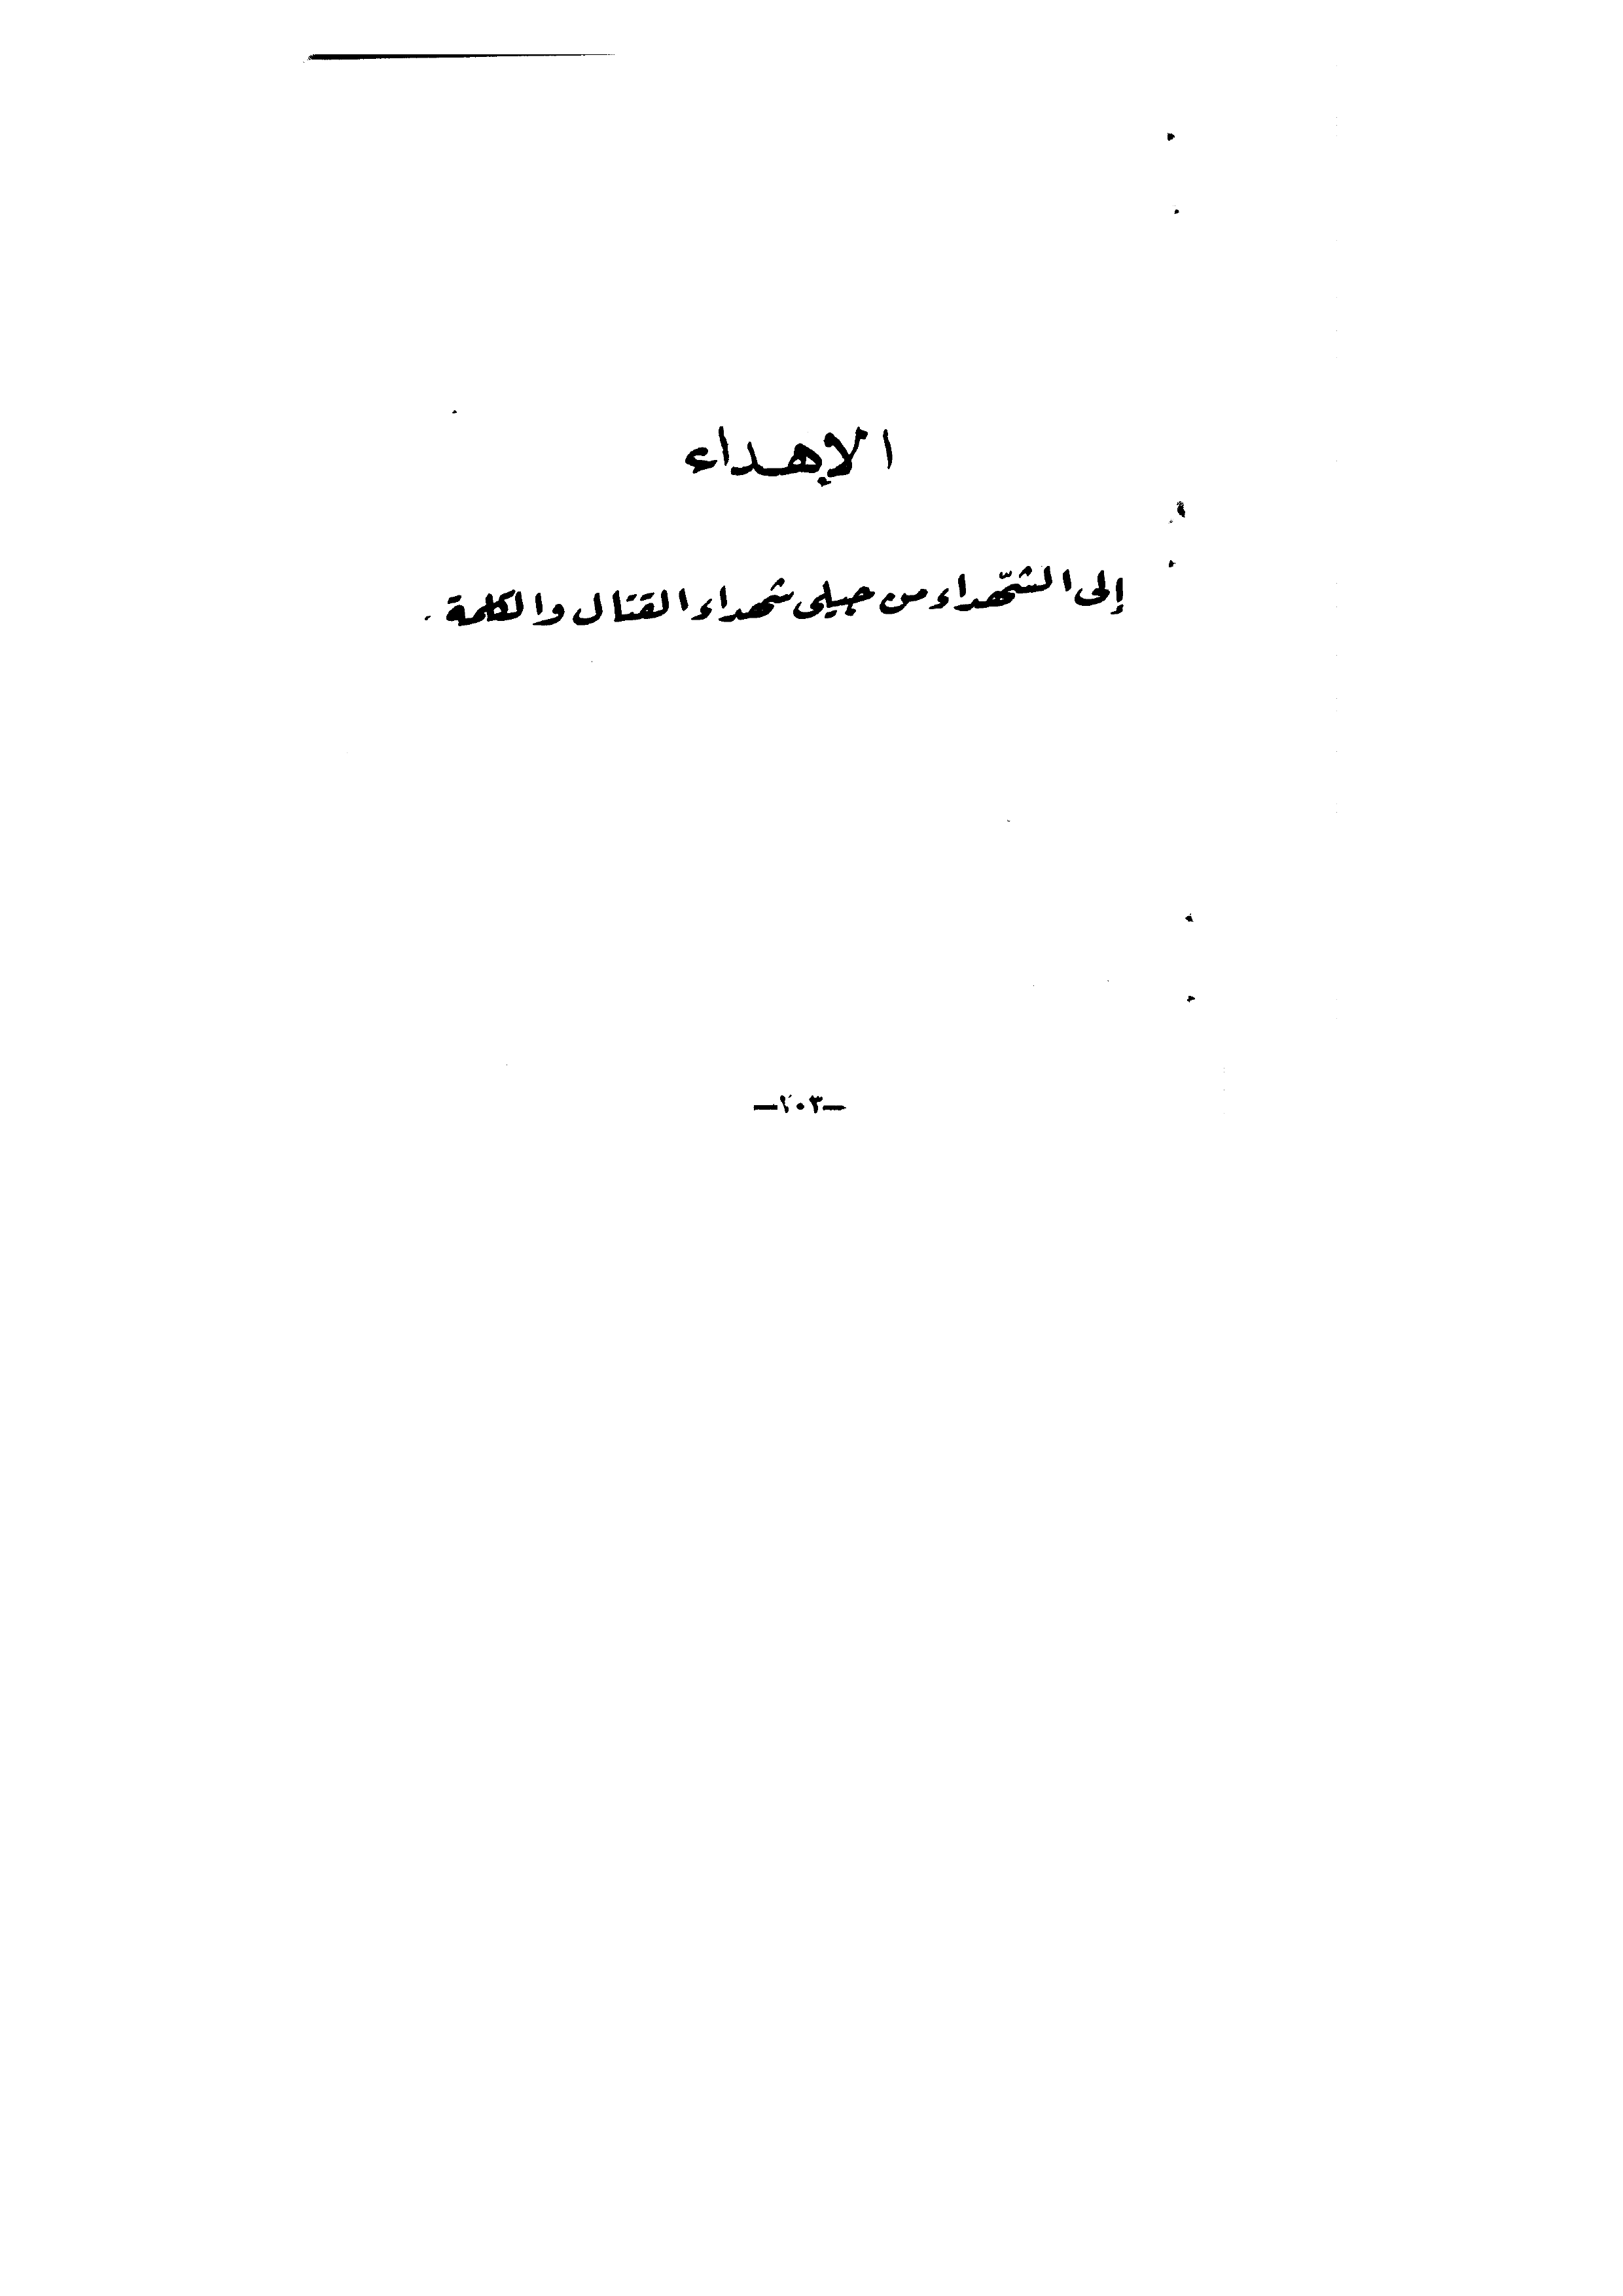 الإهداء
إلى الشّهداء من جيلي شهداء القتال والكلمة .
—٢٠٣—